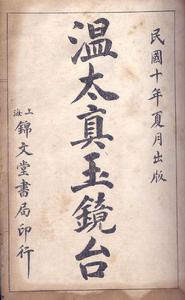 民國十年夏月出版
温太真玉鏡台
上海
錦文堂書局印行